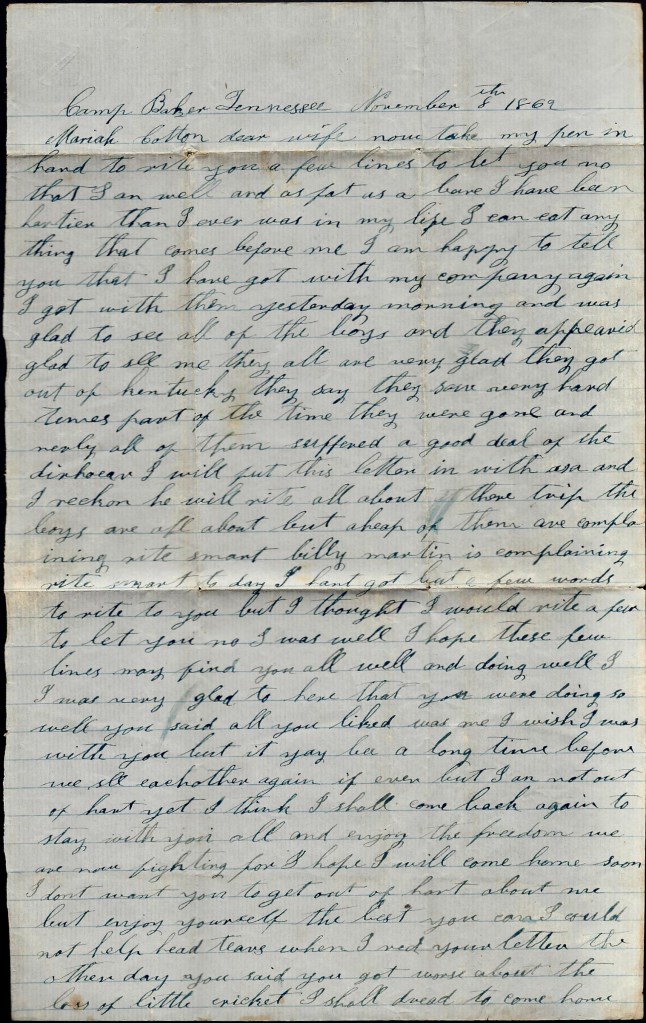 Camp Baker Tennessee November 8th 1862
Mariah Cotton dear wife now take my pen in
hand to rite you a few lines to let you no
that I an well and as fat as a bare I have ben
hartier than I ever was in my life I can eat any
thing that comes before me I am happy to tell
you that I have got with my company again
I got with them yesterday morning and was
glad to see all of the boys and they appeared
glad to see me they all are very glad they got
out of kentucky they say they saw very hard
times part of the time they were gone and
nerly all of them suffered a good deal of the
I will put this letter in with asa and
I reckon he will rite all about there trip the
boys are all about but aheap of them are compla
ining rite smart billy martin is complaining
rite smart to day I hant got but a few words
to rite to you but I thought I would rite a few
to let you no I was well I hope these few
lines may find you all well and doing well I
I was very glad to here that you were doing so
well you said all you liked was me I wish I was
with you but it yay be a long time before
we see eachother again if ever but I am not out
of hart yet I think I shall come back again to
stay with you all and enjoy the freedom we
are now fighting for I hope I will come home soon
I dont want you to get out of hart about me
but enjoy yourself the best you can I could
not help head tears when I red your letter the
other day you said you got worse about the
loss of little cricket I shall dread to come home